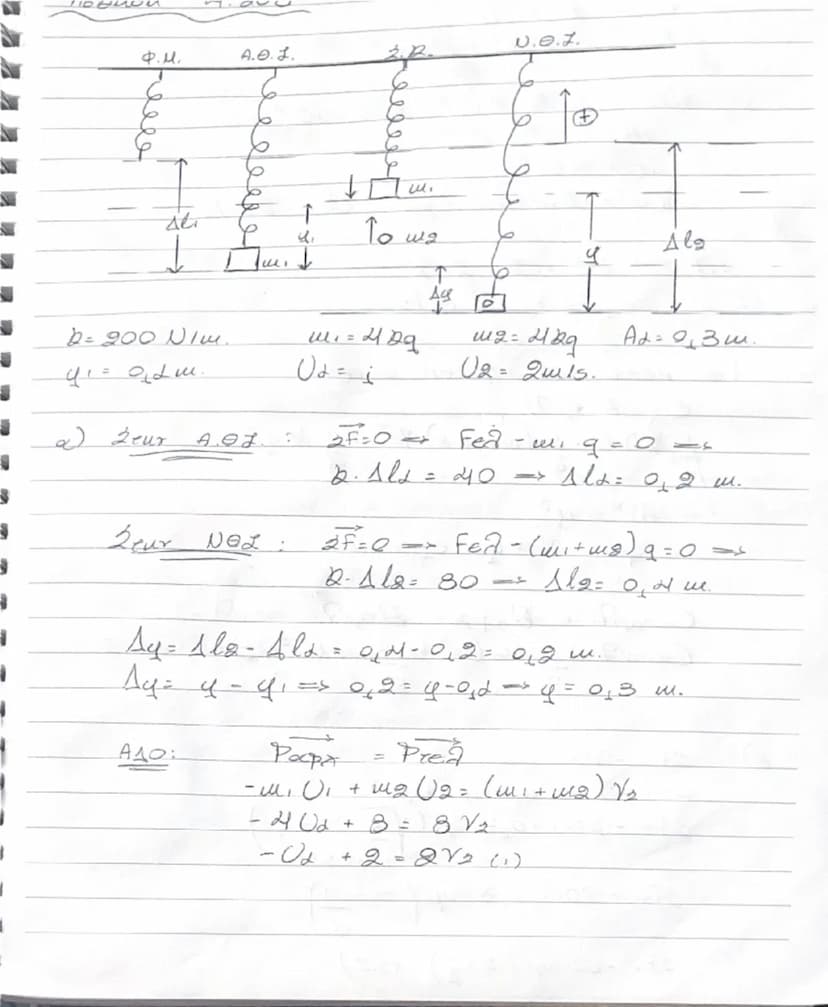 Φ.Μ. Α.Θ.Ι. Σ.Κ. Ν.Θ.Ι.
⊕
m₁
Δl₁ y₁ m2 y Δl2
m₁
Δy
k = 200 N/m. m₁ = 4 kg m2 = 4 kg A1 = 0,3 m.
y₁ = 0,1 m. U1 = ; U2 = 2m/s.
α) Στην Α.Θ.Ι. : ΣF=0 → Fελ - m₁ g = 0 →
k. Δl1 = 40 → Δl1 = 0,2 m.
Στην ΝΘΙ : ΣF=0 → Fελ - (m₁+m2) g = 0 →
k. Δl2 = 80 → Δl2 = 0,4 m.
Δy = Δl2 - Δl1 = 0,4 - 0,2 = 0,2 m.
Δy = y - y₁ → 0,2 = y - 0,1 → y = 0,3 m.
ΑΔΟ: Pαρχ = Pτελ
- m₁ U₁ + m2 U2 = (m₁ + m2) V2
- 4 U1 + 8 = 8 V2
- U1 + 2 = 2V2 (1)